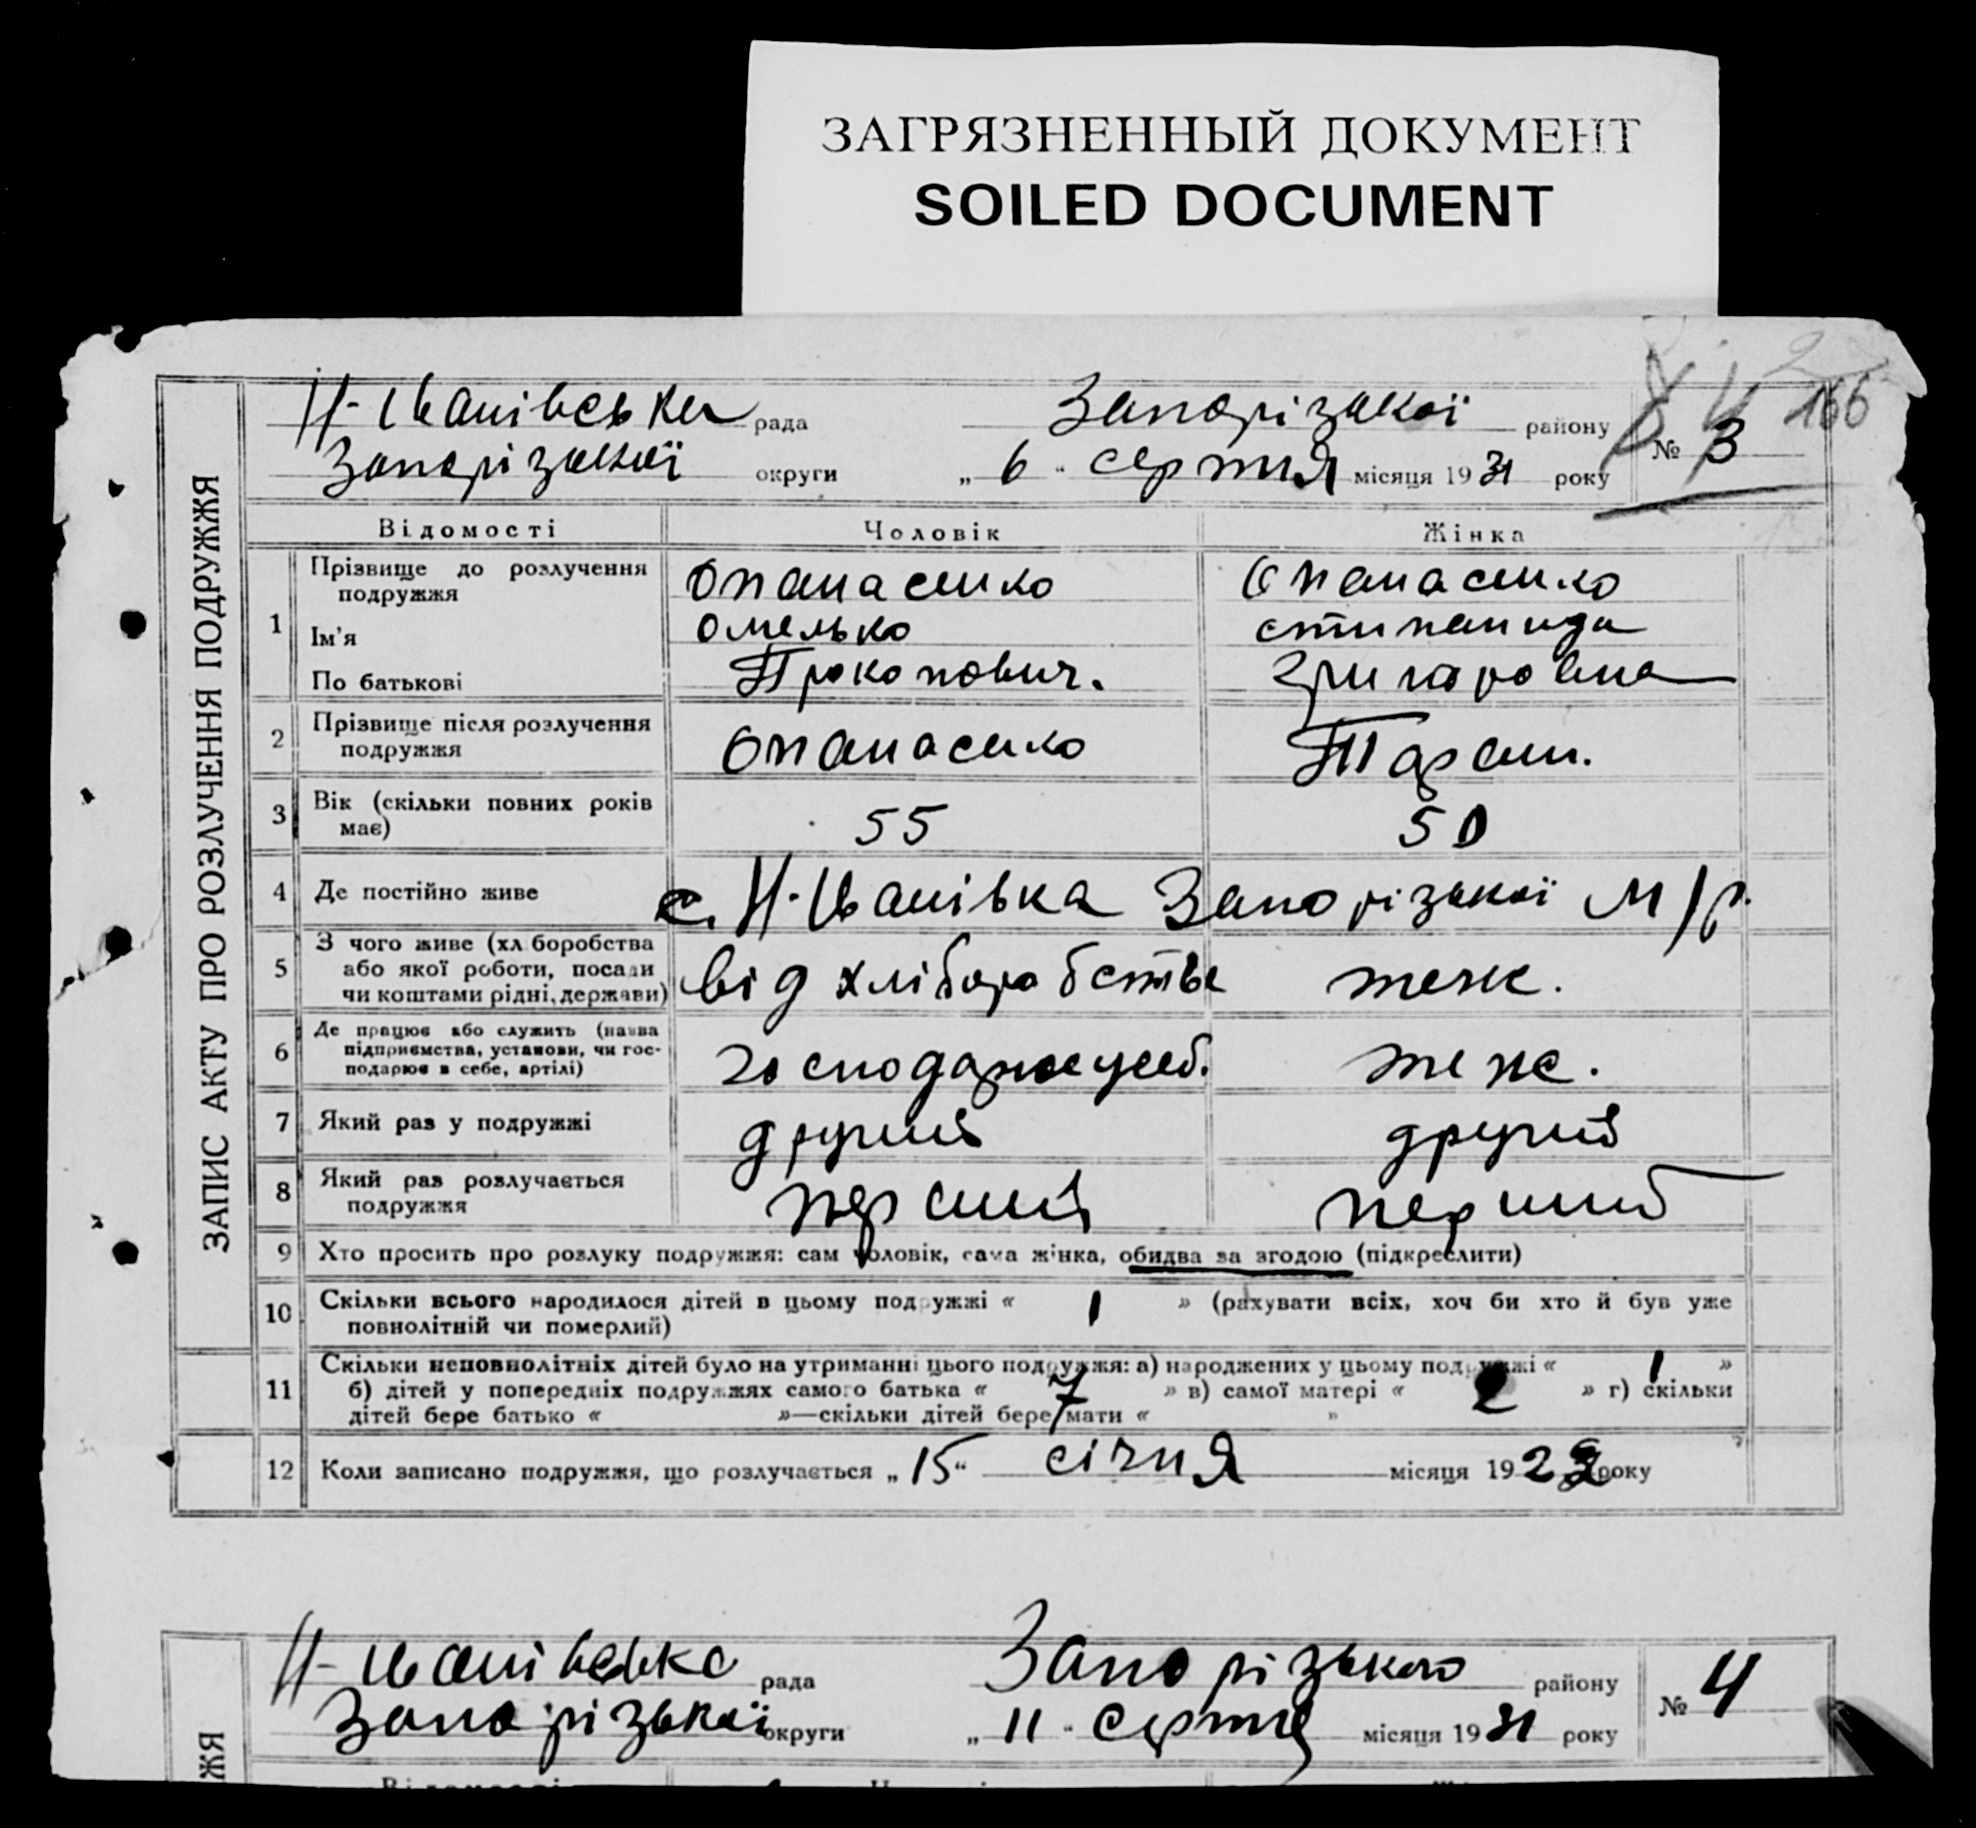 ЗАГРЯЗНЕННЫЙ ДОКУМЕНТ
SOILED DOCUMENT
166
Н-Іванівська рада Запорізької району № 3
Запорізької округи „ 6 " серпня місяця 1931 року
ЗАПИС АКТУ ПРО РОЗЛУЧЕННЯ ПОДРУЖЖЯ
Відомості Чоловік Жінка
1 Прізвище до розлучення подружжя Опанасенко Опанасенко
Ім'я Омелько Стипанида
По батькові Прокопович. Григоровна
2 Прізвище після розлучення подружжя Опанасенко Таран.
3 Вік (скільки повних років має) 55 50
4 Де постійно живе с. Н-Іванівка Запорізької м/р.
5 З чого живе (хліборобства або якої роботи, посади чи коштами рідні, держави) від хліборобства теж.
6 Де працює або служить (назва підприємства, установи, чи господарює в себе, артілі) теж.
7 Який раз у подружжі другий другий
8 Який раз розлучається подружжя перший перший
9 Хто просить про розлуку подружжя: сам чоловік, сама жінка, обидва за згодою (підкреслити)
10 Скільки всього народилося дітей в цьому подружжі « 1 » (рахувати всіх, хоч би хто й був уже
повнолітній чи померлий)
11 Скільки неповнолітніх дітей було на утриманні цього подружжя: а) народжених у цьому подружжі « 1 »
б) дітей у попередніх подружжях самого батька « 7 » в) самої матері « 2 » г) скільки
дітей бере батько « »—скільки дітей бере мати « »
12 Коли записано подружжя, що розлучається „ 15 " січня місяця 192 року
Н-Іванівська рада Запорізького району № 4
Запорізької округи „ 11 " серпня місяця 1931 року
ЖЯ